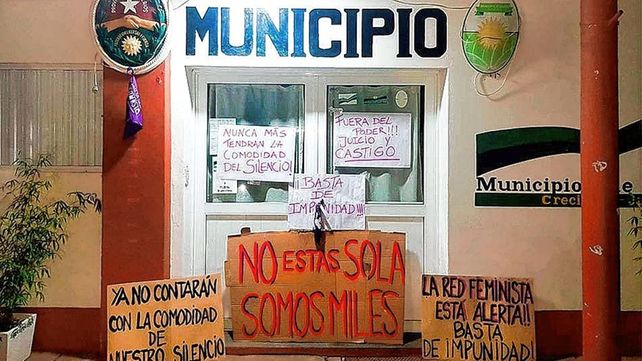 MUNICIPIO
NUNCA MÁS
TENDRÁN LA
COMODIDAD
DEL SILENCIO!
FUERA DEL
PODER!!!
JUICIO Y
CASTIGO
¡¡BASTA
DE
IMPUNIDAD!!!
Municipio
Creci
NO ESTÁS SOLA
SOMOS MILES
YA NO CONTARÁN
CON LA COMODIDAD
DE NUESTRO SILENCIO
LA RED FEMINISTA
ESTÁ ALERTA!!
BASTA
DE IMPUNIDAD!